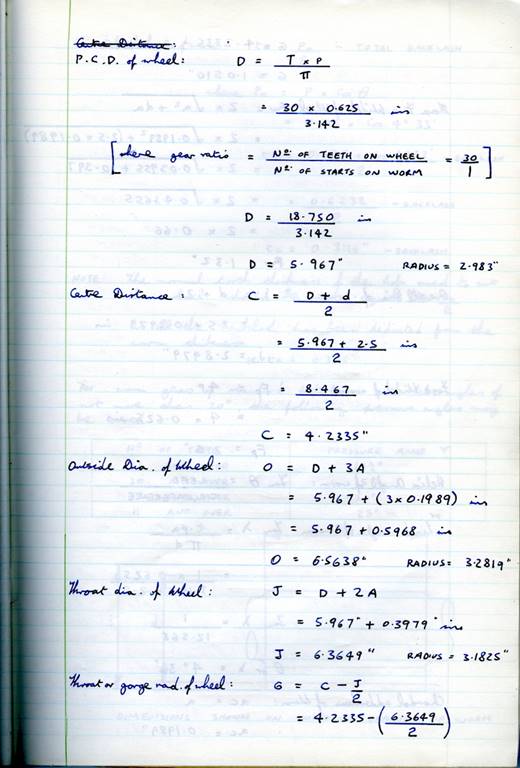 Centre Distance:
P.C.D. of wheel: D = T x P / π
= 30 x 0.625 / 3.142 ins
[where gear ratio = Nº. OF TEETH ON WHEEL / Nº. OF STARTS ON WORM = 30 / 1]
D = 18.750 / 3.142 in
D = 5.967" RADIUS = 2.983"
Centre Distance: C = D + d / 2
= 5.967 + 2.5 / 2 ins
= 8.467 / 2 ins
C = 4.2335"
Outside Dia. of Wheel: O = D + 3A
= 5.967 + (3 x 0.1989) ins
= 5.967 + 0.5968 ins
O = 6.5638" RADIUS = 3.2819"
Throat dia. of wheel: J = D + 2A
= 5.967" + 0.3979" ins
J = 6.3649" RADIUS = 3.1825"
Throat or gorge rad. of wheel: G = C - J / 2
= 4.2335 - (6.3649 / 2)